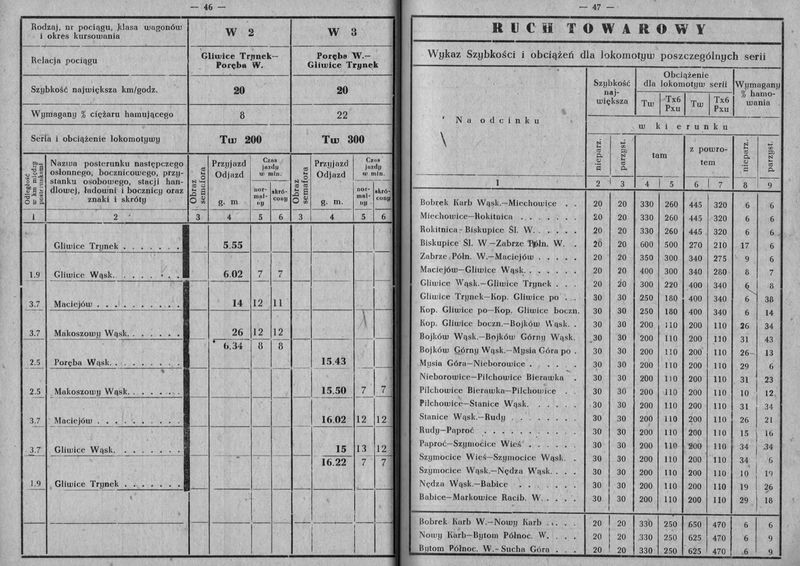 — 46 —
Rodzaj, nr pociągu, klasa wagonów i okres kursowania W 2 W 3
Relacja pociągu Gliwice Trynek— Poręba W. Poręba W.— Gliwice Trynek
Szybkość największa km/godz. 20 20
Wymagany % ciężaru hamującego 8 22
Seria i obciążenie lokomotywy Tw 200 Tw 300
Odległość w km między posterunkami
Nazwa posterunku następczego osłonnego, bocznicowego, przystanku osobowego, stacji handlowej, ładowni i bocznicy oraz znaki i skróty
Obraz semafora Przyjazd Odjazd g. m Czas jazdy w min. normalny skrócony
Obraz semafora Przyjazd Odjazd g. m. Czas jazdy w min. normalny skrócony
1 2 3 4 5 6 3 4 5 6
Gliwice Trynek . . . . . . . 5.55
1.9 Gliwice Wąsk. . . . . . . . 6.02 7 7
3.7 Maciejów . . . . . . . . . 14 12 11
3.7 Makoszowy Wąsk. . . . . . . 26 12 12
6.34 8 8
2.5 Poręba Wąsk. . . . . . . . 15.43
2.5 Makoszowy Wąsk. . . . . . . 15.50 7 7
3.7 Maciejów . . . . . . . . . 16.02 12 12
3.7 Gliwice Wąsk. . . . . . . . 15 13 12
16.22 7 7
1.9 Gliwice Trynek . . . . . . .
— 47 —
RUCH TOWAROWY
Wykaz Szybkości i obciążeń dla lokomotyw poszczególnych serii
Na odcinku
Szybkość największa
Obciążenie dla lokomotyw serii
Wymagany % hamowania
Tw Tx6 Pxu Tw Tx6 Pxu
w kierunku
nieparz. parzyst. tam z powrotem nieparz. parzyst.
1 2 3 4 5 6 7 8 9
Bobrek Karb Wąsk.—Miechowice . . 20 20 330 260 445 320 6 6
Miechowice—Rokitnica . . . . . . 20 20 330 260 445 320 6 6
Rokitnica-Biskupice Śl. W. . . . . 20 20 330 260 445 320 6 6
Biskupice Śl. W—Zabrze Półn. W. . 20 20 600 500 270 210 17 6
Zabrze Półn. W.—Maciejów . . . . . 20 20 350 300 340 275 9 6
Maciejów—Gliwice Wąsk. . . . . . 20 20 400 300 340 280 8 7
Gliwice Wąsk.—Gliwice Trynek . . . 20 20 300 220 400 340 6 8
Gliwice Trynek—Kop. Gliwice po . . 30 30 250 180 400 340 6 38
Kop. Gliwice po—Kop. Gliwice boczn. 30 30 250 180 400 340 6 14
Kop. Gliwice boczn.—Bojków Wąsk. . 30 30 200 110 200 110 26 34
Bojków Wąsk.—Bojków Górny Wąsk. 30 30 200 110 200 110 31 43
Bojków Górny Wąsk.—Mysia Góra po . 30 30 200 110 200 110 26 13
Mysia Góra—Nieborowice . . . . . 30 30 200 110 200 110 29 6
Nieborowice—Pilchowice Bierawka . 30 30 200 110 200 110 31 23
Pilchowice Bierawka—Pilchowice . . 30 30 200 110 200 110 10 12
Pilchowice—Stanice Wąsk. . . . . . 30 30 200 110 200 110 31 34
Stanice Wąsk.—Rudy . . . . . . . 30 30 200 110 200 110 26 21
Rudy—Paproć . . . . . . . . . . 30 30 200 110 200 110 15 16
Paproć—Szymocice Wieś . . . . . 30 30 200 110 200 110 34 34
Szymocice Wieś—Szymocice Wąsk. . 30 30 200 110 200 110 34 6
Szymocice Wąsk.—Nędza Wąsk. . . . 30 30 200 110 200 110 10 19
Nędza Wąsk.—Babice . . . . . . . 30 30 200 110 200 110 19 26
Babice—Markowice Racib. W. . . . . 30 30 200 110 200 110 29 18
Bobrek Karb W.—Nowy Karb . . . . 20 20 330 250 650 470 6 6
Nowy Karb—Bytom Północ. W. . . . 20 20 330 250 625 470 6 9
Bytom Północ. W.- Sucha Góra . . . 20 20 330 250 625 470 6 9